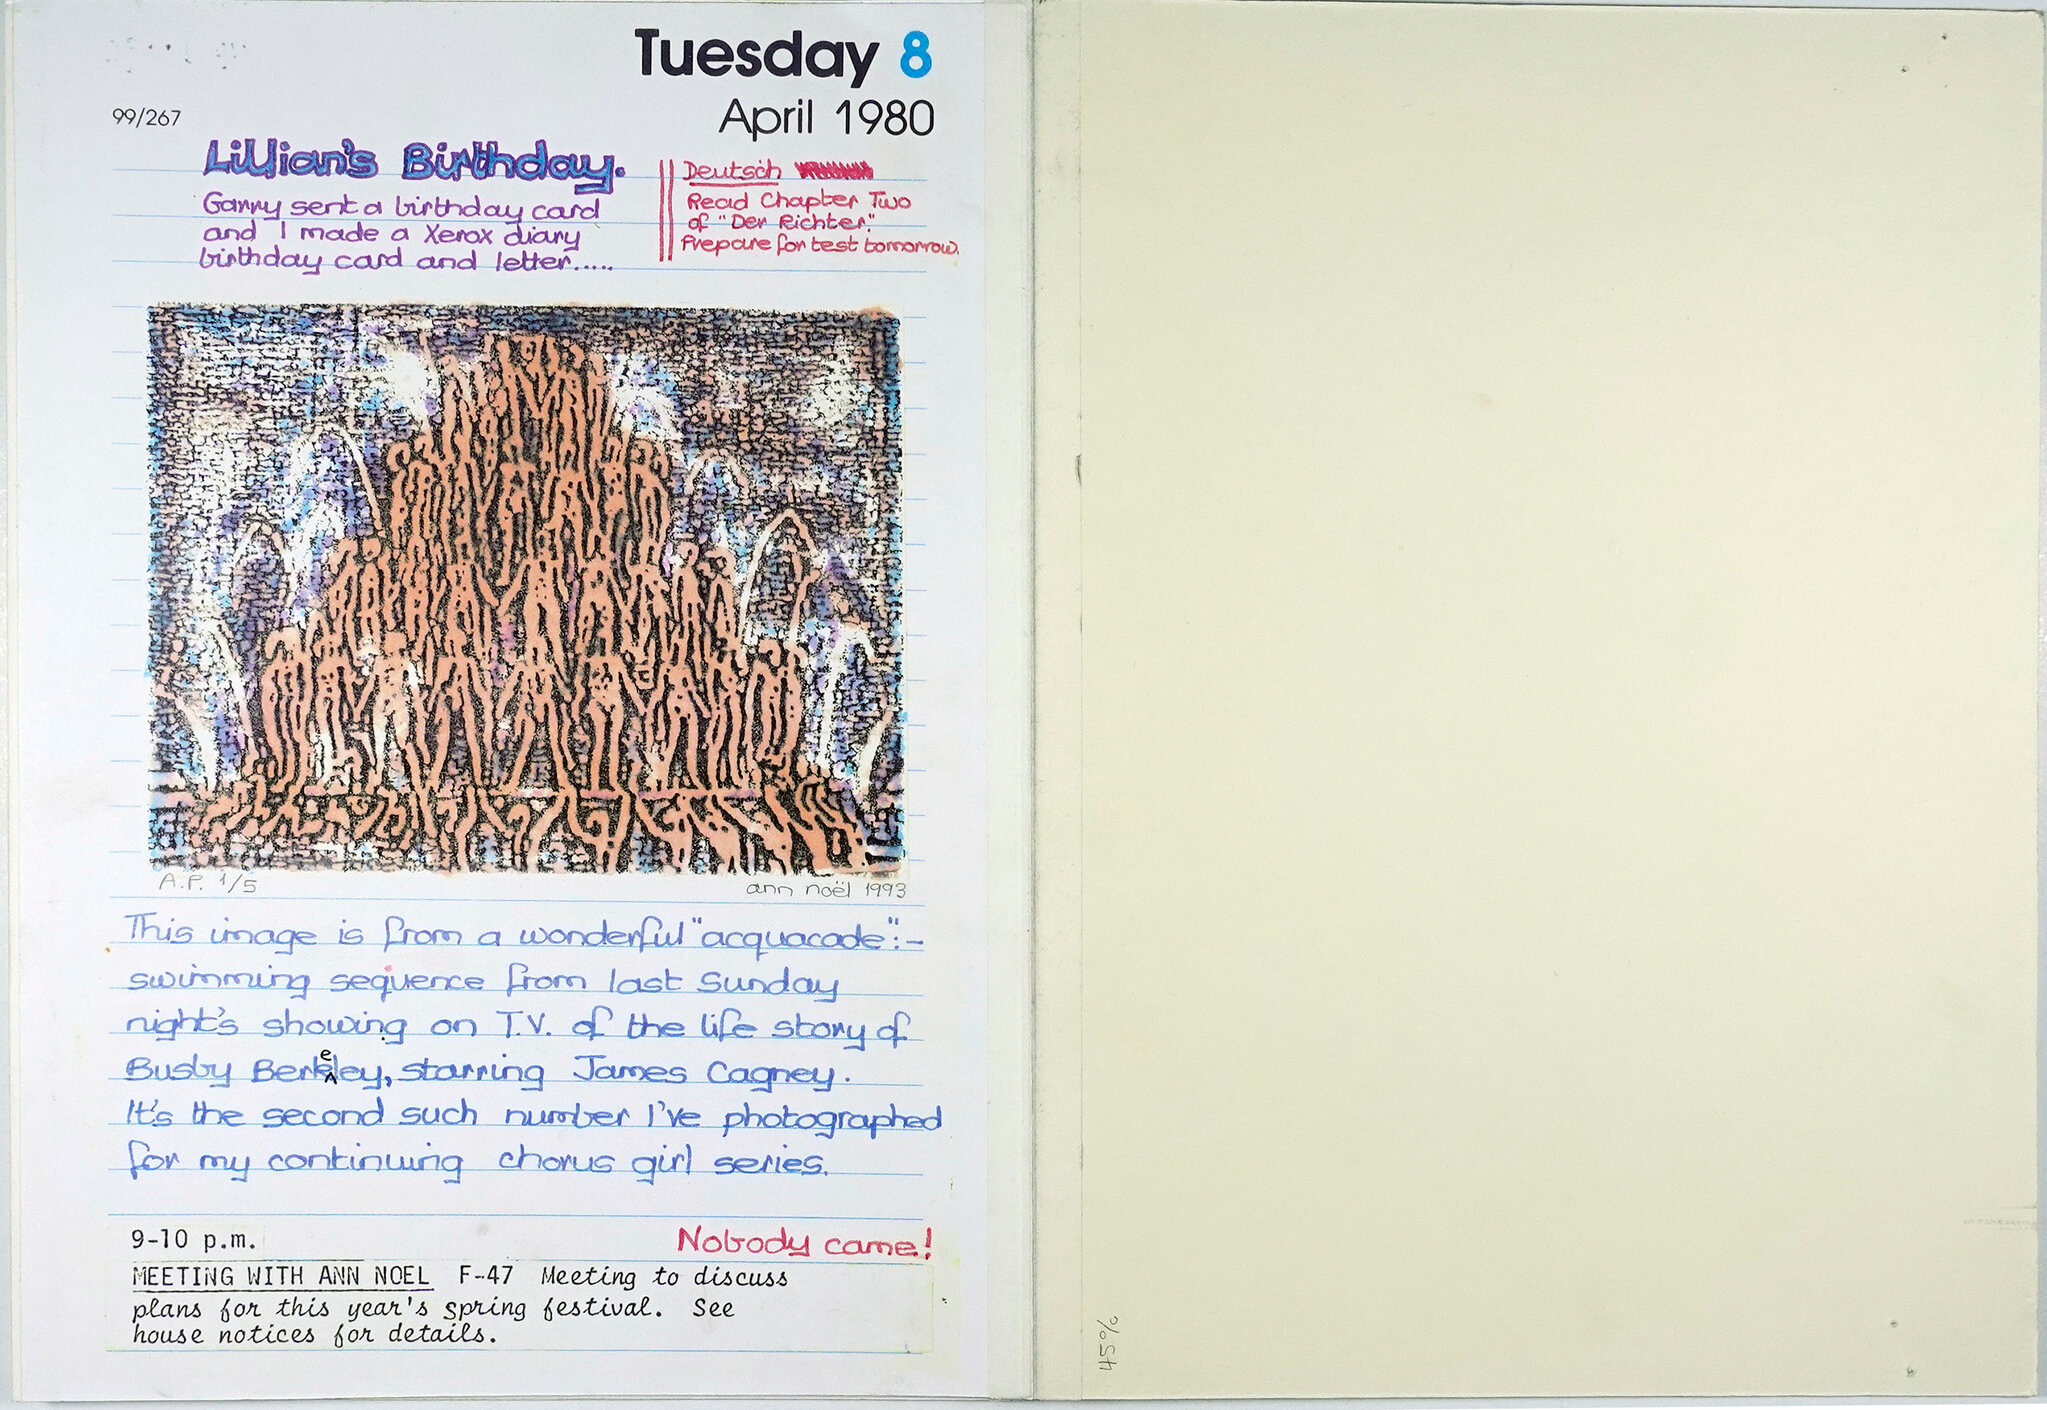 Tuesday 8
April 1980
99/267
Lillian's Birthday.
Garry sent a birthday card
and I made a Xerox diary
birthday card and letter.....
Deutsch
Read Chapter Two
of "Der Richter."
Prepare for test tomorrow.
A.P. 1/5
ann noël 1993
This image is from a wonderful "acquacade":-
swimming sequence from last Sunday
night's showing on T.V. of the life story of
Busby Berkeley, starring James Cagney.
It's the second such number I've photographed
for my continuing chorus girl series.
9-10 p.m.
Nobody came!
MEETING WITH ANN NOEL F-47 Meeting to discuss
plans for this year's spring festival. See
house notices for details.
45%